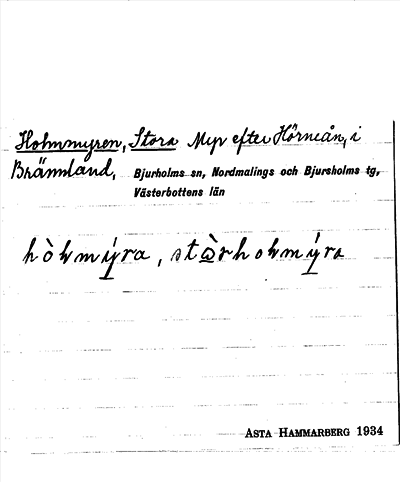 Holmmyren, Stora Myr efter Hörneån, i
Brännland, Bjurholms sn, Nordmalings och Bjursholms tg,
Västerbottens län
hòlvmýra, stàrholvmýra
ASTA HAMMARBERG 1934